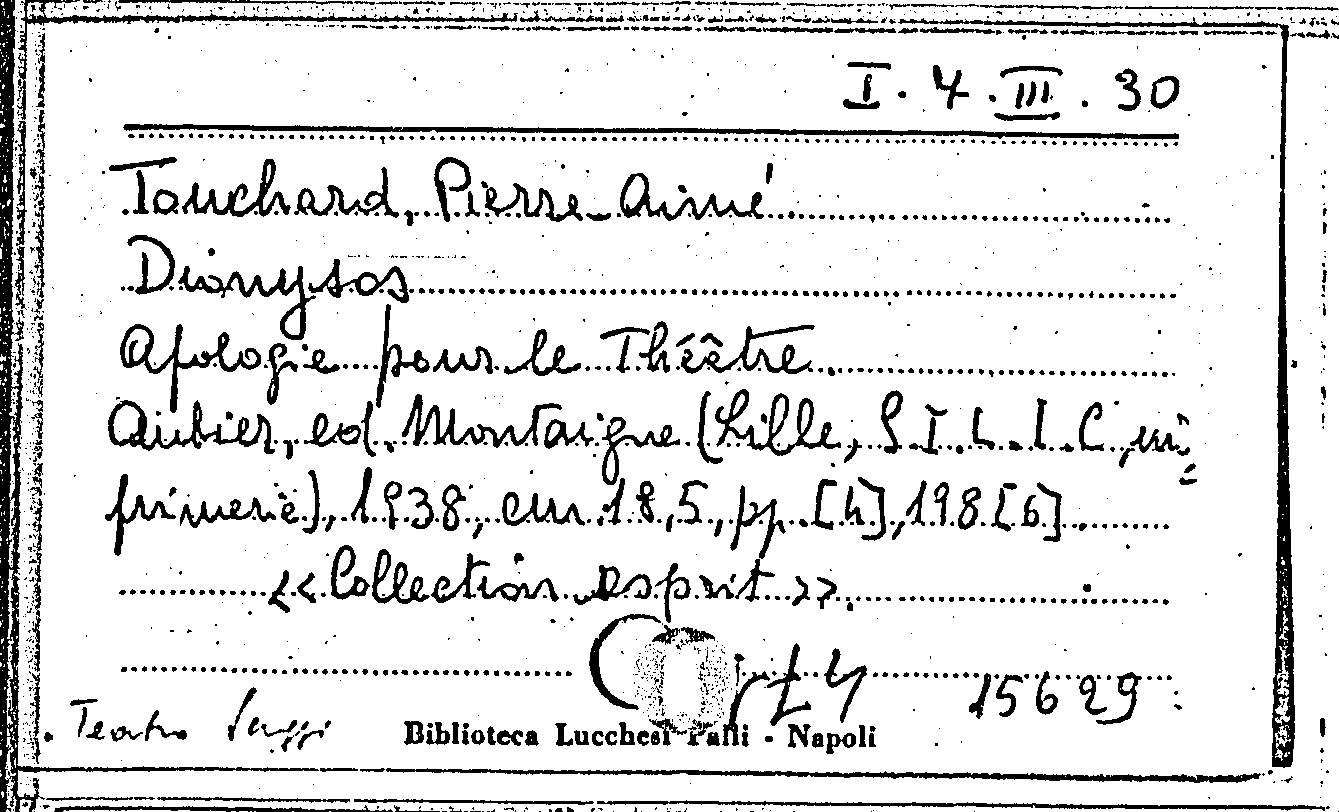 I. 4. III. 30
Touchard, Pierre-Aimé
Dionysos
Apologie pour le Théêtre.
Aubier, ed. Montaigne (Lille, S.I.L.I.C, im=
primerie), 1938, cm. 18,5, pp. [4], 198 [6].
<< Collection esprit >>.
15629
Teatro Saggi
Biblioteca Lucchesi Palli - Napoli